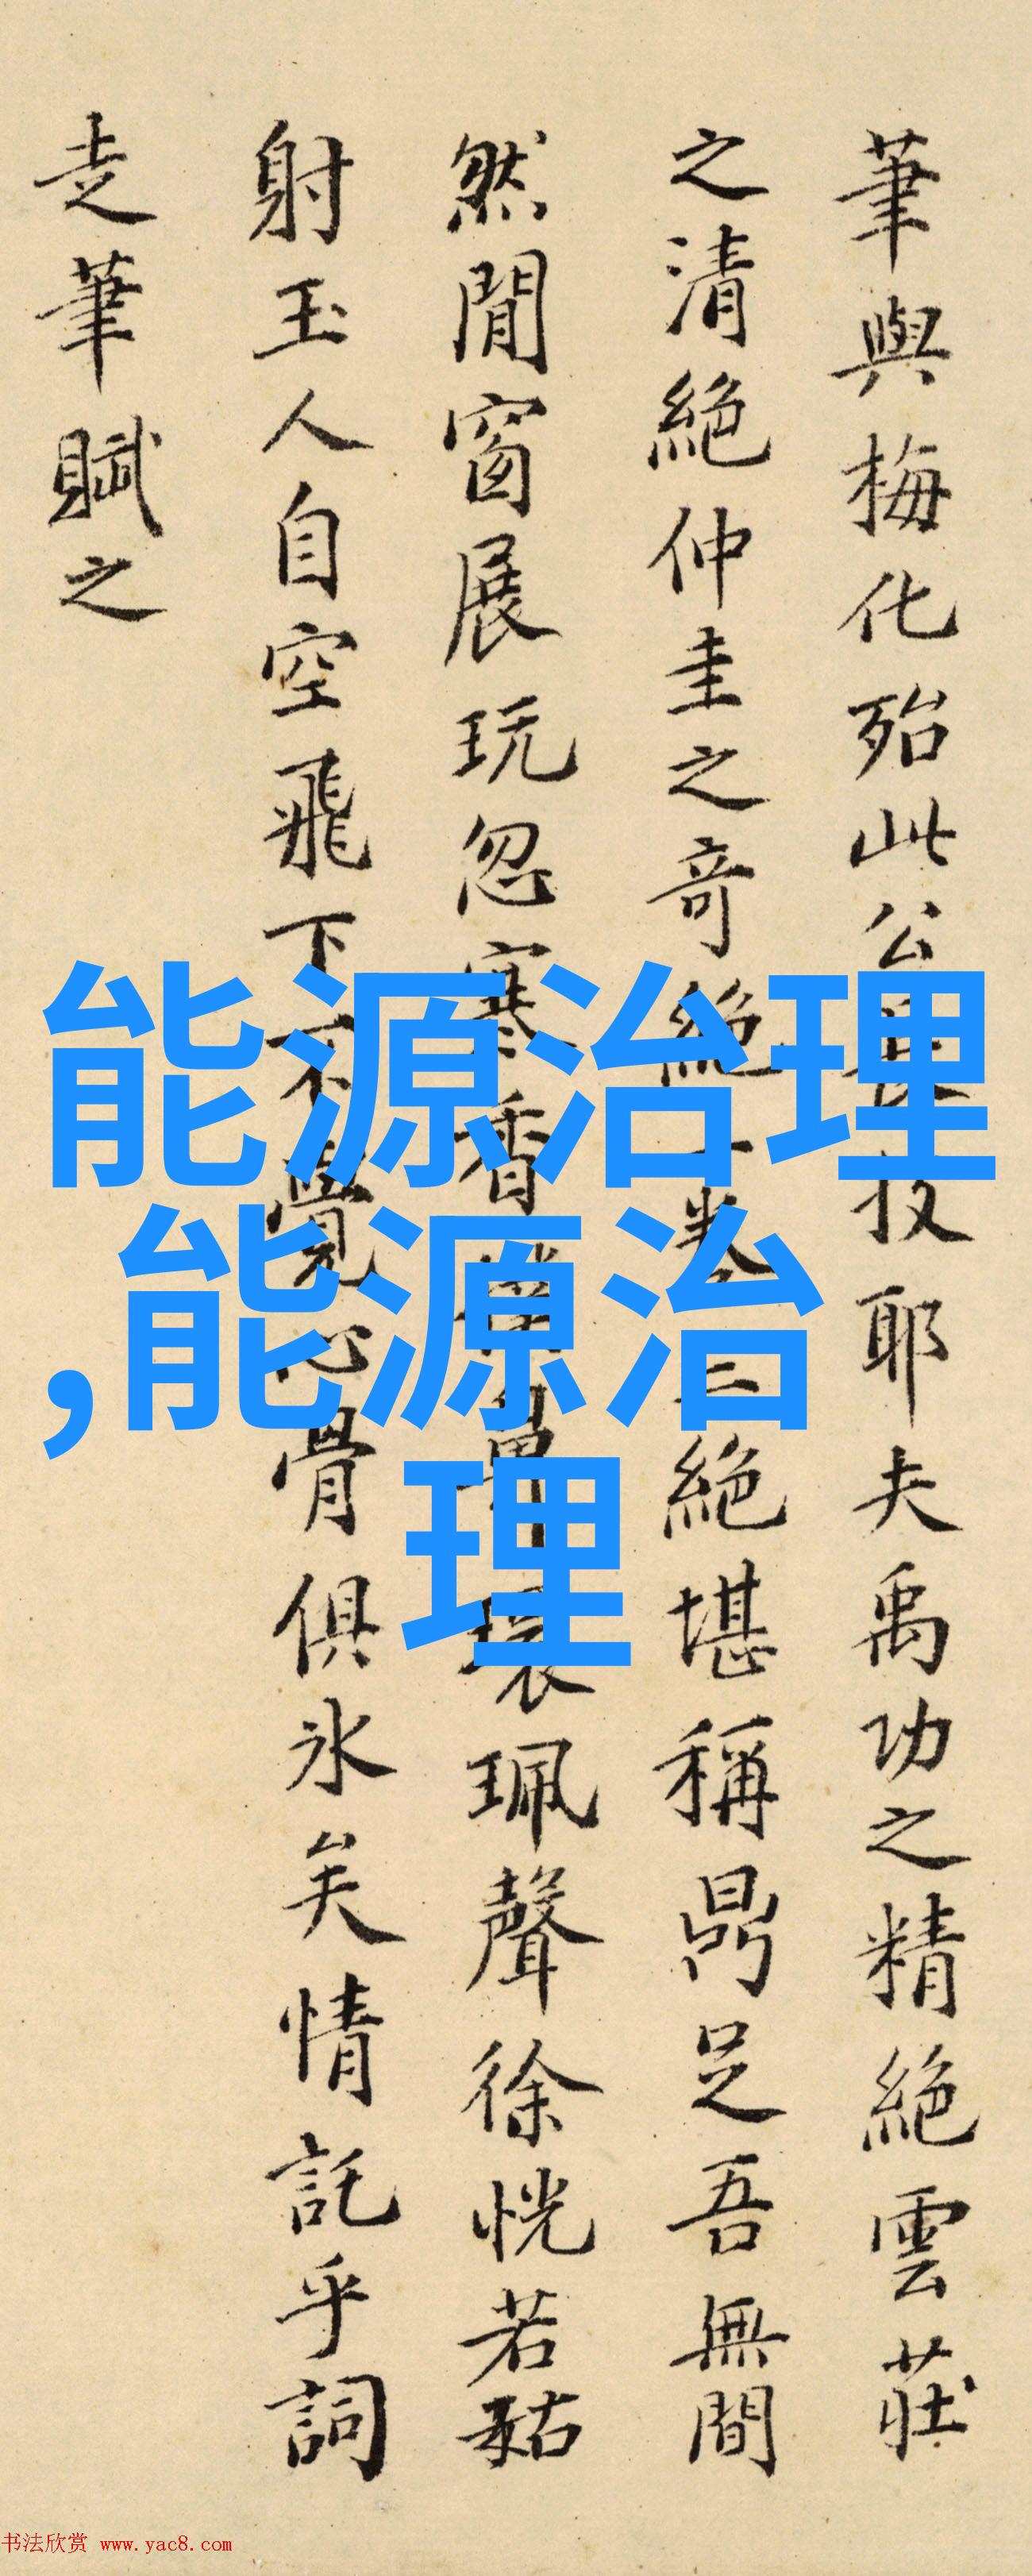 筆與梅化殆此公長技耶夫禹功之精絕雲莊
之清絕仲圭之奇絕一卷三絕堪稱鼎足吾無間
然閒窗展玩忽寒香撲鼻環珮聲徐恍若
射玉人自空飛下不覺心骨俱氷矣情託乎詞
走筆賦之
能源治理
,能源治
理
书法欣赏 www.yac8.com